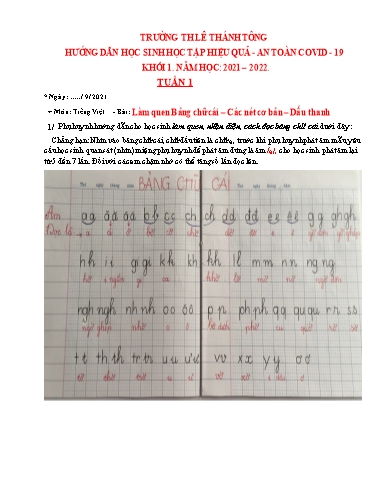 TRƯỜNG TH LÊ THÁNH TÔNG
HƯỚNG DẪN HỌC SINH HỌC TẬP HIỆU QUẢ - AN TOÀN COVID - 19
KHỐI 1. NĂM HỌC: 2021 – 2022.
TUẦN 1
* Ngày: ...../ 9/2021
+ Môn: Tiếng Việt - Bài: Làm quen Bảng chữ cái – Các nét cơ bản – Dấu thanh
1/ Phụ huynh hướng dẫn cho học sinh làm quen, nhận diện, cách đọc bảng chữ cái dưới đây:
Chẳng hạn: Nhìn vào bảng chữ cái, chữ đầu tiên là chữ a, trước khi phụ huynh phát âm mẫu yêu
cầu học sinh quan sát (nhìn) miệng phụ huynh để phát âm đúng là âm /a/, cho học sinh phát âm lại
từ 5 đến 7 lần. Đối với các em chậm nhớ có thể tăng số lần đọc lên.
BẢNG CHỮ CÁI
Âm aa ăă ââ bb cc ch ch dd đđ ee êê gg gh gh
Đọc là
hh ii gi gi kh kh kh ll mm nn ng ng
ngh ngh nh nh oo ôô p ph ph qq qu qu rr ss
tt th th tr tr uu ưư vv xx yy ơơ